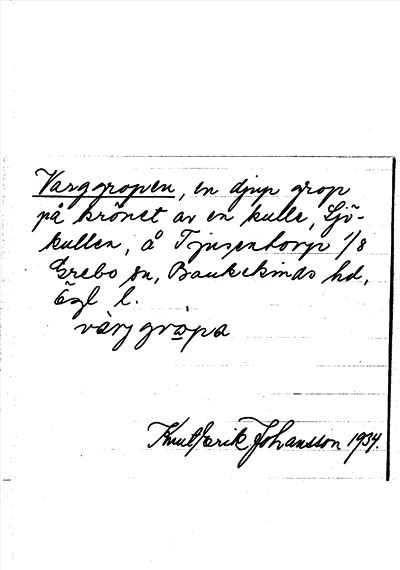 Varggropen, en djup grop
på krönet av en kulle, Sjö-
kullen, å Tjusentorp 1/8
Grebo sn, Bankekinds hd,
Ögl l.
varjgropa
Knut Erik Johansson 1934.